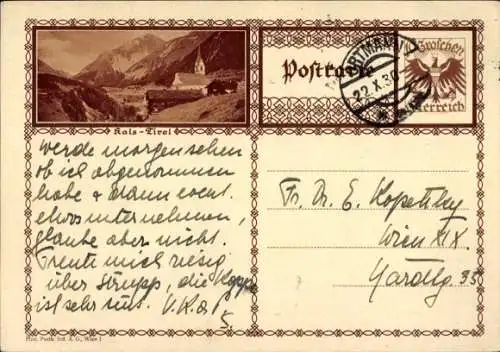 Kals - Tirol
Postkarte
Groschen
Österreich
22.X.30
werde morgen sehen
ob ich abgenommen
habe + dann event.
etwas unternehmen,
glaube aber nicht.
Freute mich riesig
über Strupp, die Kappe
ist sehr süss. V.K.a.
S.
Fr. Dr. E. Kopetzky
Wien XIX
35
Wien I